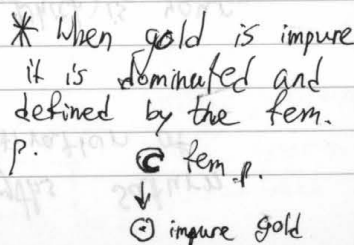 * When gold is impure
it is dominated and
defined by the fem.
p.
☾ fem. p.
↓
☉ impure gold